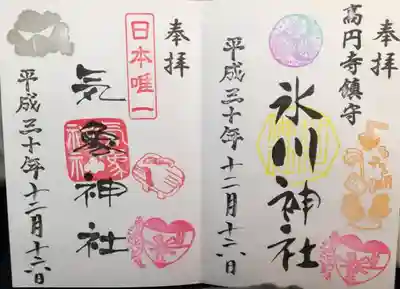 奉拝
高円寺鎮守
氷川神社
平成三十年十二月十六日
奉拝
日本唯一
気象神社
平成三十年十二月十六日